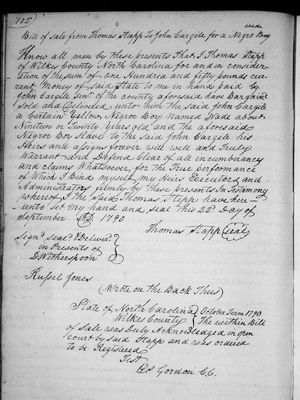 105
Bill of Sale from Thomas Stapp To John Cargile for a Negro Boy
Know all men by these Presents That I Thomas Stapp
of Wilkes County North Carolina for and in consider-
ation of the sum of one Hundred and fifty pounds cur-
rant money of said State to me in hand paid by
John Cargile senr of the county aforesaid have Bargained
sold and Delivered unto him the said John Cargile
a certain yellow Negro Boy Named Wade about
Nineteen or Twenty years old and the aforesaid
Negro Boy Slave to the said John Cargile his
Heirs and assigns forever will well and Truly
Warrant and Defend clear of all incumberancy
and claims Whatsoever for the True performance
of Which I Bind myself my Heirs Executors and
Administrators firmly by these presents In Testimony
whereof I the said Thomas Stapp have here-
unto set my hand and seal this 22d Day of
September 1790
Thomas Stapp Seal
Signd seald & Deliverd
in Presents of
D Witherspoon
Russel Jones
(Wrote on the Back Thus)
State of North Carolina October Term 1790
Wilkes County The within Bill
of Sale was Duly Acknowledged in open
court by said Stapp and was ordered
to be Registered
Test
Gordon C.C.